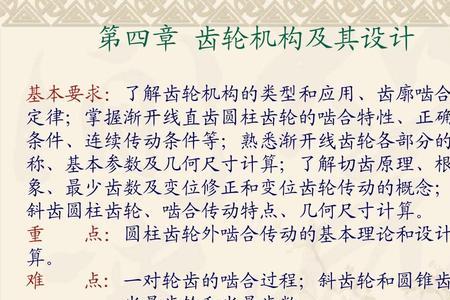 第四章 齿轮机构及其设计
基本要求：了解齿轮机构的类型和应用、齿廓啮合
定律；掌握渐开线直齿圆柱齿轮的啮合特性、正确
条件、连续传动条件等；熟悉渐开线齿轮各部分的
称、基本参数及几何尺寸计算；了解切齿原理、根
象、最少齿数及变位修正和变位齿轮传动的概念；
斜齿圆柱齿轮、啮合传动特点、几何尺寸计算。
重 点：圆柱齿轮外啮合传动的基本理论和设计
算。
难 点：一对轮齿的啮合过程；斜齿轮和圆锥齿